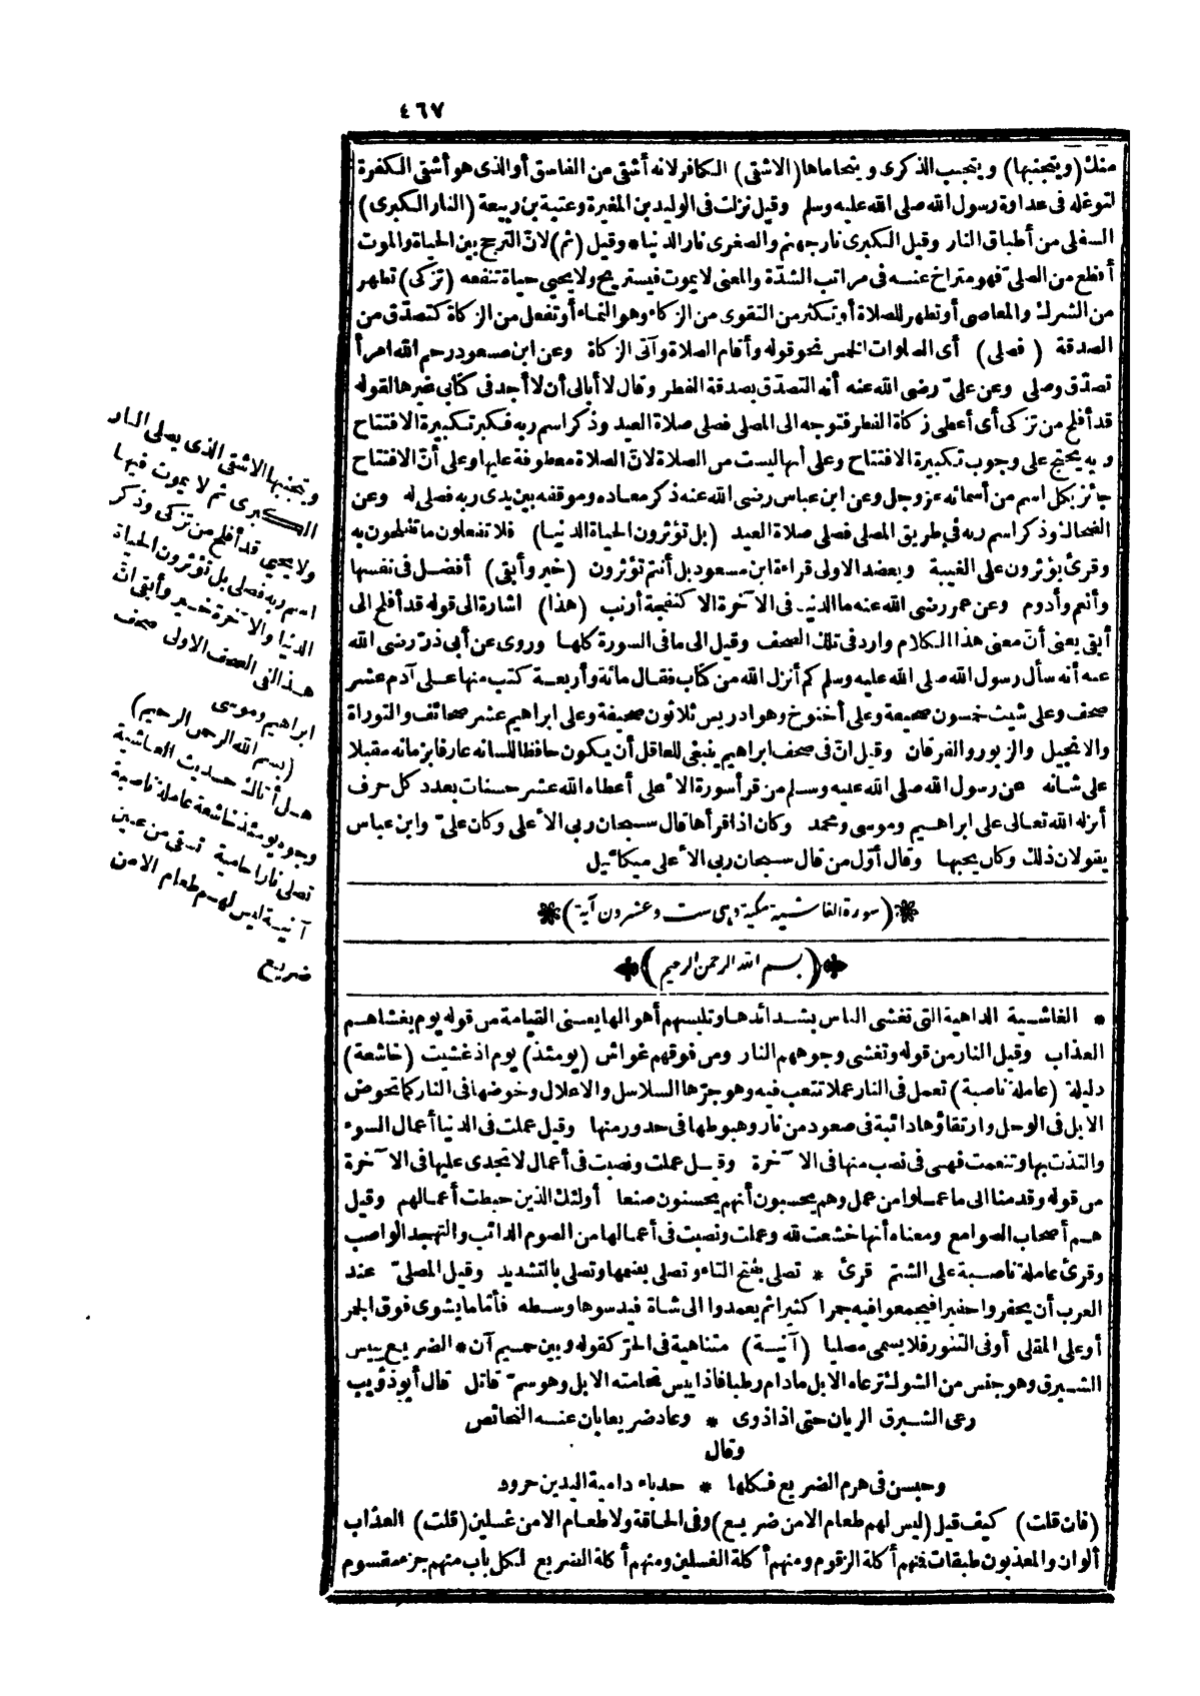 ٤٦٧
منك (ويتجنبها) ويتجنب الذكرى ويتحاماها (الاشقى) الكافر لانه أشقى من الفاسق أو الذى هو أشقى الكفرة
لتوغله فى عداوة رسول الله صلى الله عليه وسلم وقيل نزلت فى الوليد بن المغيرة وعتبة بن ربيعة (النار الكبرى)
السفلى من أطباق النار وقيل الكبرى نار جهنم والصغرى نار الدنيا * وقيل (ثم) لانّ الترجح بين الحياة والموت
أفظع من الصلىّ فهو متراخ عنه فى مراتب الشدّة والمعنى لا يموت فيستريح ولا يحيى حياة تنفعه (تزكى) تطهر
من الشرك والمعاصى أو تطهر للصلاة أو تكثر من التقوى من الزكاء وهو النماء أو تفعل من الزكاة كتصدّق من
الصدقة (فصلى) أى الصلوات الخمس نحو قوله وأقام الصلاة وآتى الزكاة وعن ابن مسعود رحم الله امرأ
تصدّق وصلى وعن علىّ رضى الله عنه أنه التصدّق بصدقة الفطر وقال لا أبالى أن لا أجد فى كتابى غيرها لقوله
قد أفلح من تزكى أى أعطى زكاة الفطر فتوجه الى المصلى فصلى صلاة العيد وذكر اسم ربه فكبر تكبيرة الافتتاح
وبه يحتج على وجوب تكبيرة الافتتاح وعلى أنها ليست من الصلاة لانّ الصلاة معطوفة عليها وعلى أنّ الافتتاح
جائز بكل اسم من أسمائه عز وجل وعن ابن عباس رضى الله عنه ذكر معاده وموقفه بين يدى ربه فصلى له وعن
الضحاك وذكر اسم ربه فى طريق المصلى فصلى صلاة العيد (بل تؤثرون الحياة الدنيا) فلا تفعلون ما تفلحون به
وقرئ يؤثرون على الغيبة ويعضد الاولى قراءة ابن مسعود بل أنتم تؤثرون (خير وأبقى) أفضل فى نفسها
وأنعم وأدوم وعن عمر رضى الله عنه ما الدنيا فى الآخرة الا كنفجة أرنب (هذا) اشارة الى قوله قد أفلح الى
أبقى يعنى أنّ معنى هذا الكلام وارد فى تلك الصحف وقيل الى ما فى السورة كلها وروى عن أبى ذرّ رضى الله
عنه أنه سأل رسول الله صلى الله عليه وسلم كم أنزل الله من كتاب فقال مائة وأربعة كتب منها على آدم عشر
صحف وعلى شيث خمسون صحيفة وعلى أخنوخ وهو ادريس ثلاثون صحيفة وعلى ابراهيم عشر صحائف والتوراة
والانجيل والزبور والفرقان وقيل انّ فى صحف ابراهيم ينبغى للعاقل أن يكون حافظا للسانه عارفا بزمانه مقبلا
على شانه عن رسول الله صلى الله عليه وسلم من قرأ سورة الأعلى أعطاه الله عشر حسنات بعدد كل حرف
أنزله الله تعالى على ابراهيم وموسى ومحمد وكان اذا قرأها قال سبحان ربى الأعلى وكان علىّ وابن عباس
يقولان ذلك وكان يحبها وقال أوّل من قال سبحان ربى الأعلى ميكائيل
❋(سورة الغاشية مكية وهى ست وعشرون آية)❋
(بسم الله الرحمن الرحيم)
* الغاشية الداهية التى تغشى الناس بشدائدها وتلبسهم أهوالها يعنى القيامة من قوله يوم يغشاهم
العذاب وقيل النار من قوله وتغشى وجوههم النار ومن فوقهم غواش (يومئذ) يوم اذ غشيت (خاشعة)
ذليلة (عاملة ناصبة) تعمل فى النار عملا تتعب فيه وهو جرّها السلاسل والاغلال وخوضها فى النار كما تخوض
الابل فى الوحل وارتقاؤها دائبة فى صعود من نار وهبوطها فى حدور منها وقيل عملت فى الدنيا أعمال السوء
والتذت بها وتنعمت فهى فى نصب منها فى الآخرة وقيل عملت ونصبت فى أعمال لا تجدى عليها فى الآخرة
من قوله وقدمنا الى ما عملوا من عمل وهم يحسبون أنهم يحسنون صنعا أولئك الذين حبطت أعمالهم وقيل
هم أصحاب الصوامع ومعناه أنها خشعت لله وعملت ونصبت فى أعمالها من الصوم الدائب والتهجد الواصب
وقرئ عاملة ناصبة على الشتم قرئ * تصلى بفتح التاء وتصلى بضمها وتصلى بالتشديد وقيل المصلىّ عند
العرب أن يحفروا حفيرا فيجمعوا فيه جمرا كثيرا ثم يعمدوا الى شاة فيدسوها وسطه فأمّا ما يشوى فوق الجمر
أو على المقلى أو فى التنور فلا يسمى مصليا (آنية) متناهية فى الحرّ كقوله وبين حميم آن * الضريع يبيس
الشبرق وهو جنس من الشوك ترعاه الابل ما دام رطبا فاذا يبس تحامته الابل وهو سمّ قاتل قال أبو ذؤيب
رعى الشبرق الريان حتى اذا ذوى * وعاد ضريعا بان عنه النحائص
وقال
وحبسن فى هزم الضريع فكلها * حدباء دامية اليدين حرود
(فان قلت) كيف قيل (ليس لهم طعام الا من ضريع) وفى الحاقة ولا طعام الا من غسلين (قلت) العذاب
ألوان والمعذبون طبقات فمنهم أكلة الزقوم ومنهم أكلة الغسلين ومنهم أكلة الضريع لكل باب منهم جزء مقسوم
ويتجنبها الاشقى الذى يصلى النار
الكبرى ثم لا يموت فيها
ولا يحيى قد أفلح من تزكى وذكر
اسم ربه فصلى بل تؤثرون الحياة
الدنيا والآخرة خير وأبقى انّ
هذا لفى الصحف الاولى صحف
ابراهيم وموسى
(بسم الله الرحمن الرحيم)
هل أتاك حديث الغاشية
وجوه يومئذ خاشعة عاملة ناصبة
تصلى نارا حامية تسقى من عين
آنية ليس لهم طعام الا من
ضريع